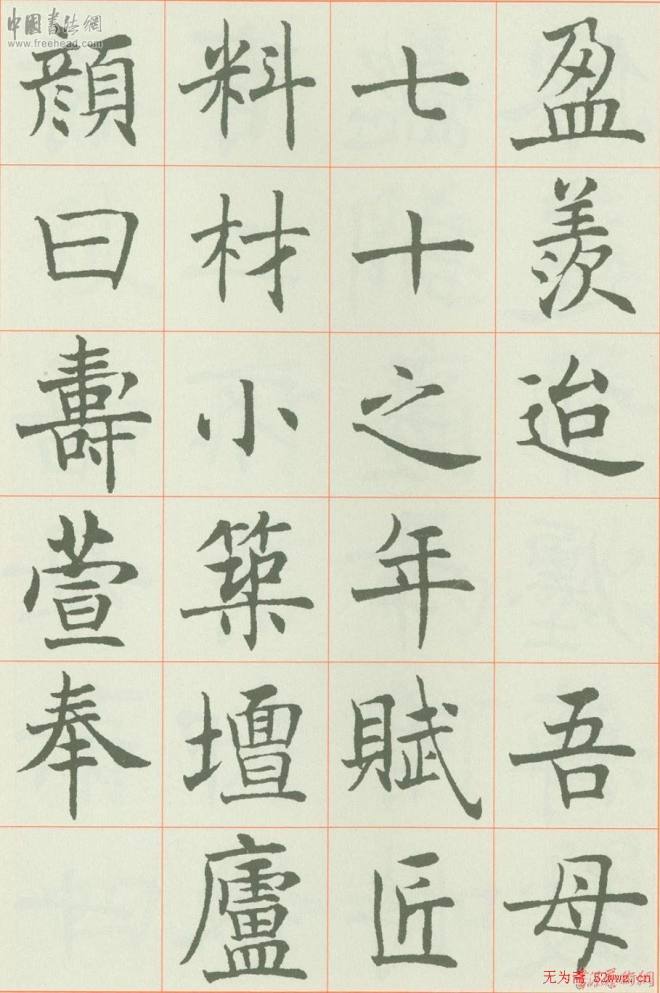 中国书法網
www.freehead.com
盈羨迨吾母
七十之年賦匠
料材小築壇廬
顏曰壽萱奉
无为斋 52wwz.cn